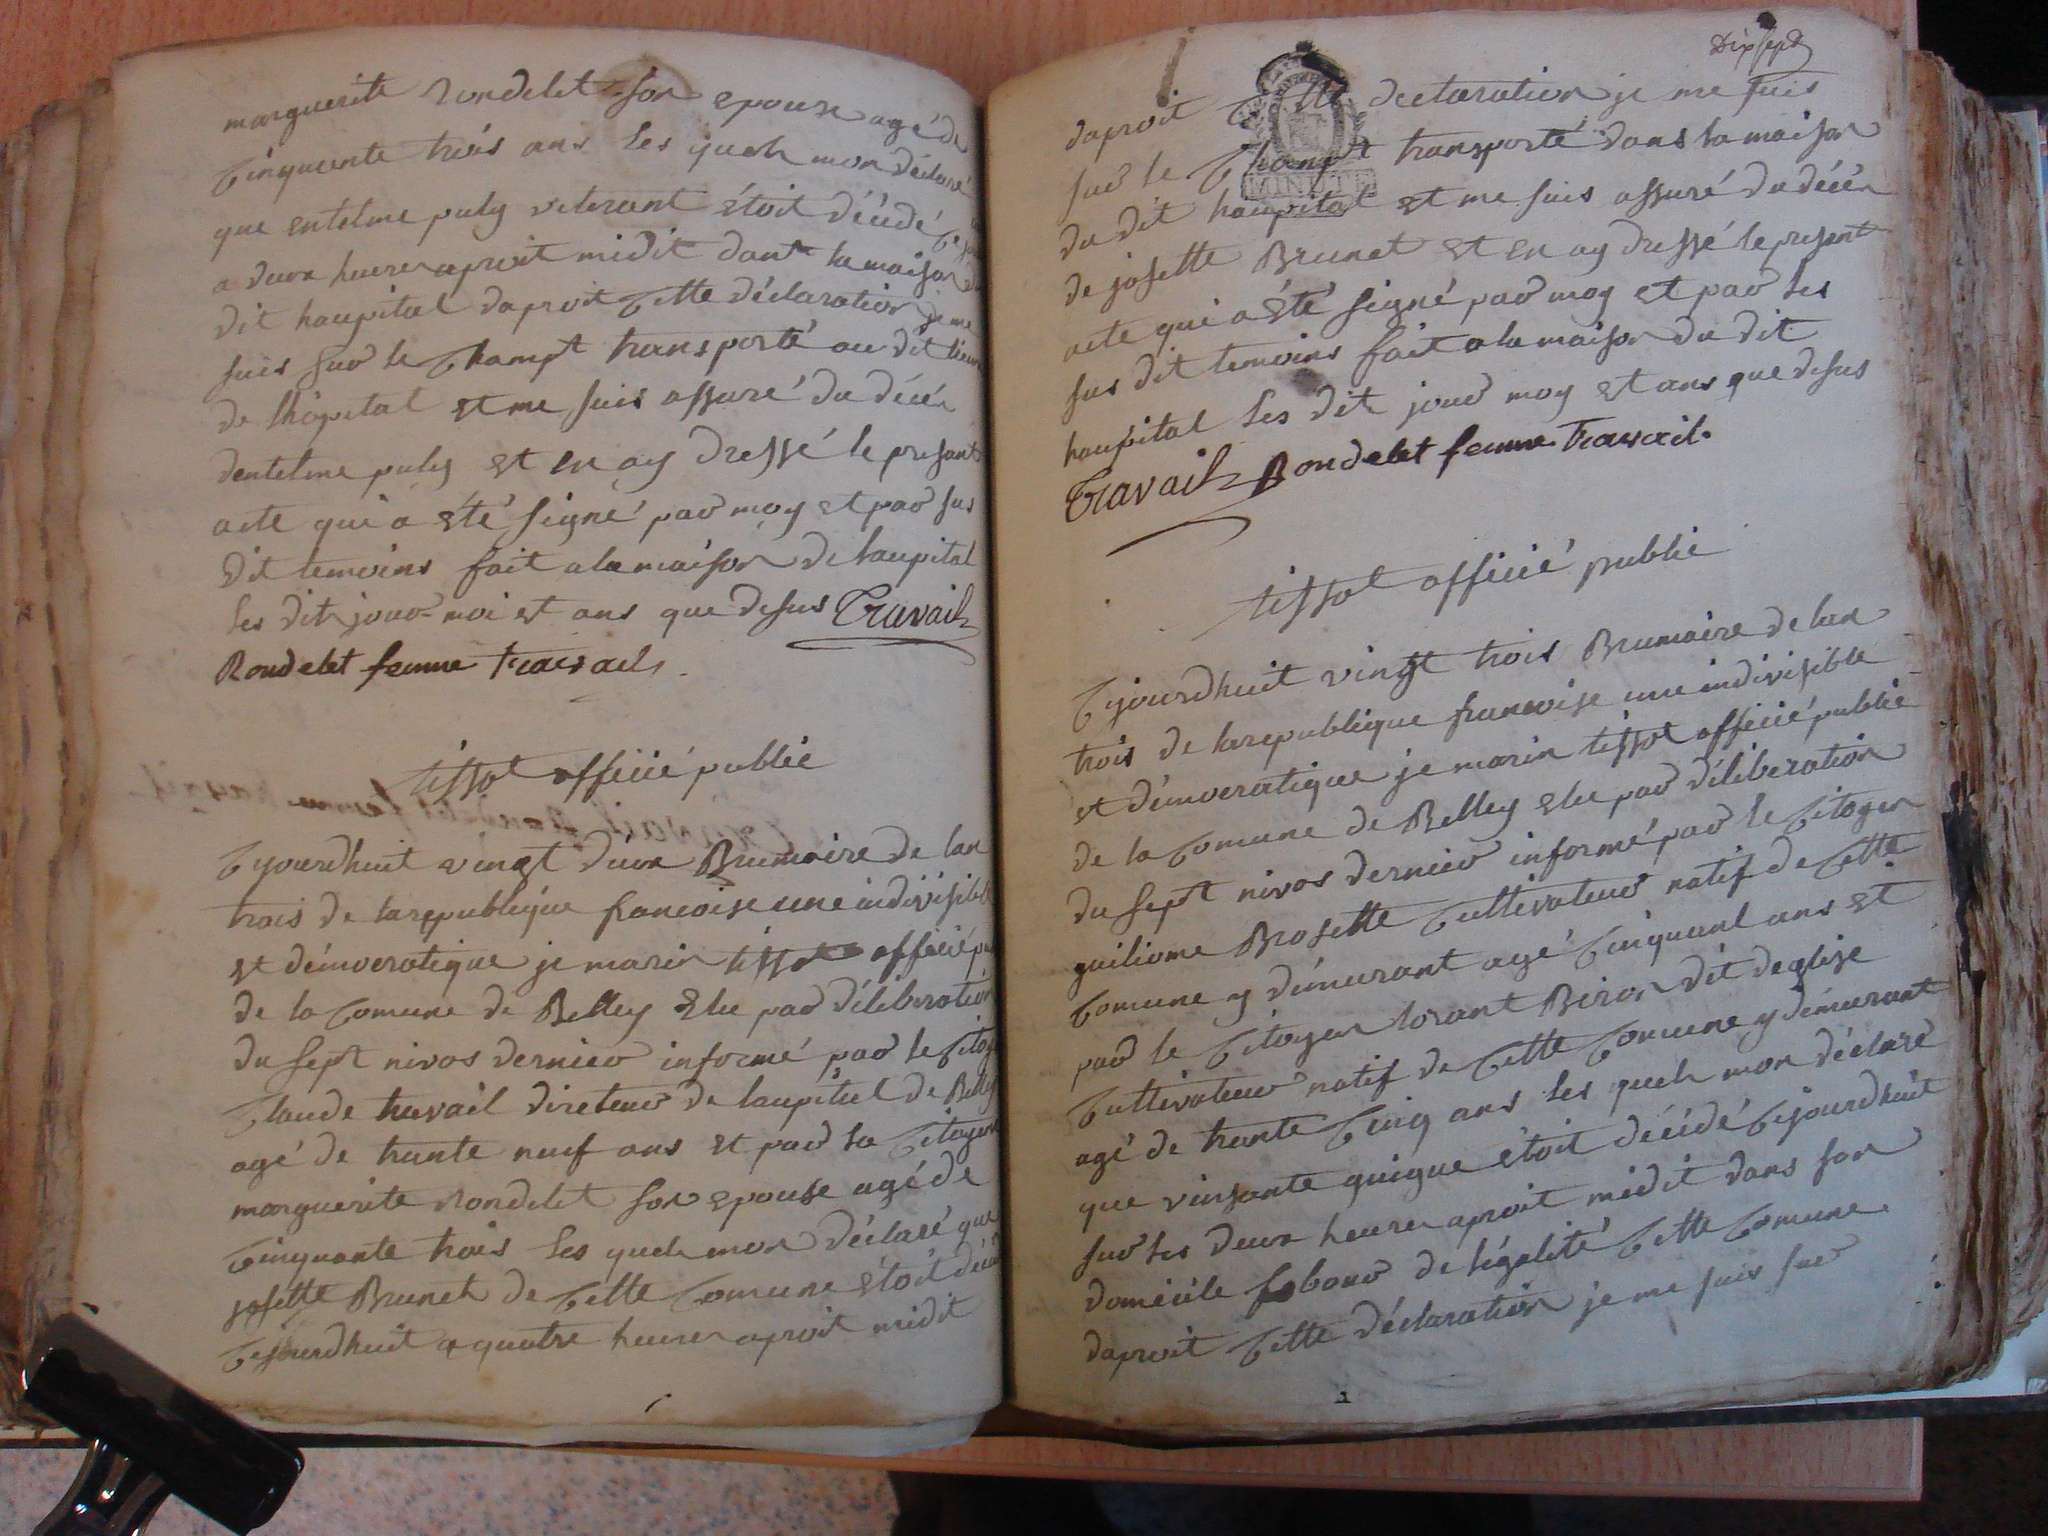 marguerite rondelet son epouse agé de
cinquente trois ans les quels mon déclaré
que entelme puly veterant étoit décédé ce
a deux heures aproit midit dans la maison du
dit haupital daproit cette déclaration je me
suis sur le champt transporté au dit lieux
de lhopital et me suis assuré du décé
dentelme puly et en ay dressé le presant
acte qui a été signé par moy et par sus
dit temoins fait a la maison de laupital
les dit jour moi et ans que desus Travail
Rondelet femme travail
tissot officié public
Cyourdhuit vingt deux Brumaire de lan
trois de larepublique francoise une indivisible
et démocratique je marin tissot officié
de la comune de Belley elu par déliberation
du sept nivos dernier informé par le
Claude travail direteur de laupital de Belley
agé de trante neuf ans et par la citoyene
marguerite rondelet son epouse agé de
cinquante trois les quels mon déclaré que
josette Brunet de cette comune étoit
cejourdhuit a quatre heures aproit midit
Dix sept
daproit cette declaration je me suis
sur le champt transporté dans la maison
MINUTE
du dit haupital et me suis assuré du décé
de josette Brunet et en ay dressé le presant
acte qui a été signé par moy et par les
sus dit temoins fait a la maison du dit
haupital les dit jour moy et ans que desus
Travail Rondelet femme travail.
tissot officié public
Cyjourdhuit vingt trois Brumaire de lan
trois de larepublique francoise une indivisible
et démocratique je marin tissot officié public
de la comune de Belley elu par déliberation
du sept nivos dernier informé par le citoyen
guiliome Brosette cultivateur natif de cette
comune y démurant agé cinquant ans et
par le citoyen lorant Biron dit deglise
cultivateur natif de cette comune y démurant
agé de trante cinq ans les quels mon déclaré
que vinsante guigue étoit décédé cejourdhuit
sur les deux heures aproit midit dans son
domicile fobour de légalité cette comune.
daproit cette déclaration je me suis sur